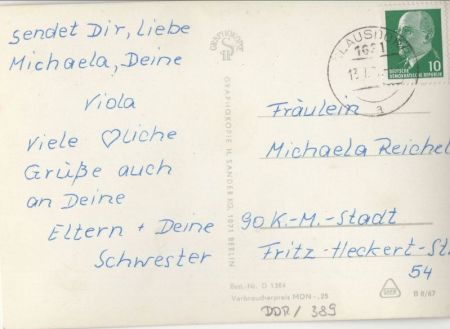 sendet Dir, liebe
Michaela, Deine
Viola
viele ♡liche
Grüße auch
an Deine
Eltern + Deine
Schwester
GRAPHOKOPIE
GRAPHOKOPIE H. SANDER KG, 1071 BERLIN
10
DEUTSCHE
DEMOKRATISCHE REPUBLIK
a
Fräulein
Michaela Reichel
90 K.-M.-Stadt
Fritz-Heckert-St
54
Best.-Nr. D 1364
Verbraucherpreis MDN -,25
B 8/67
DDR / 389